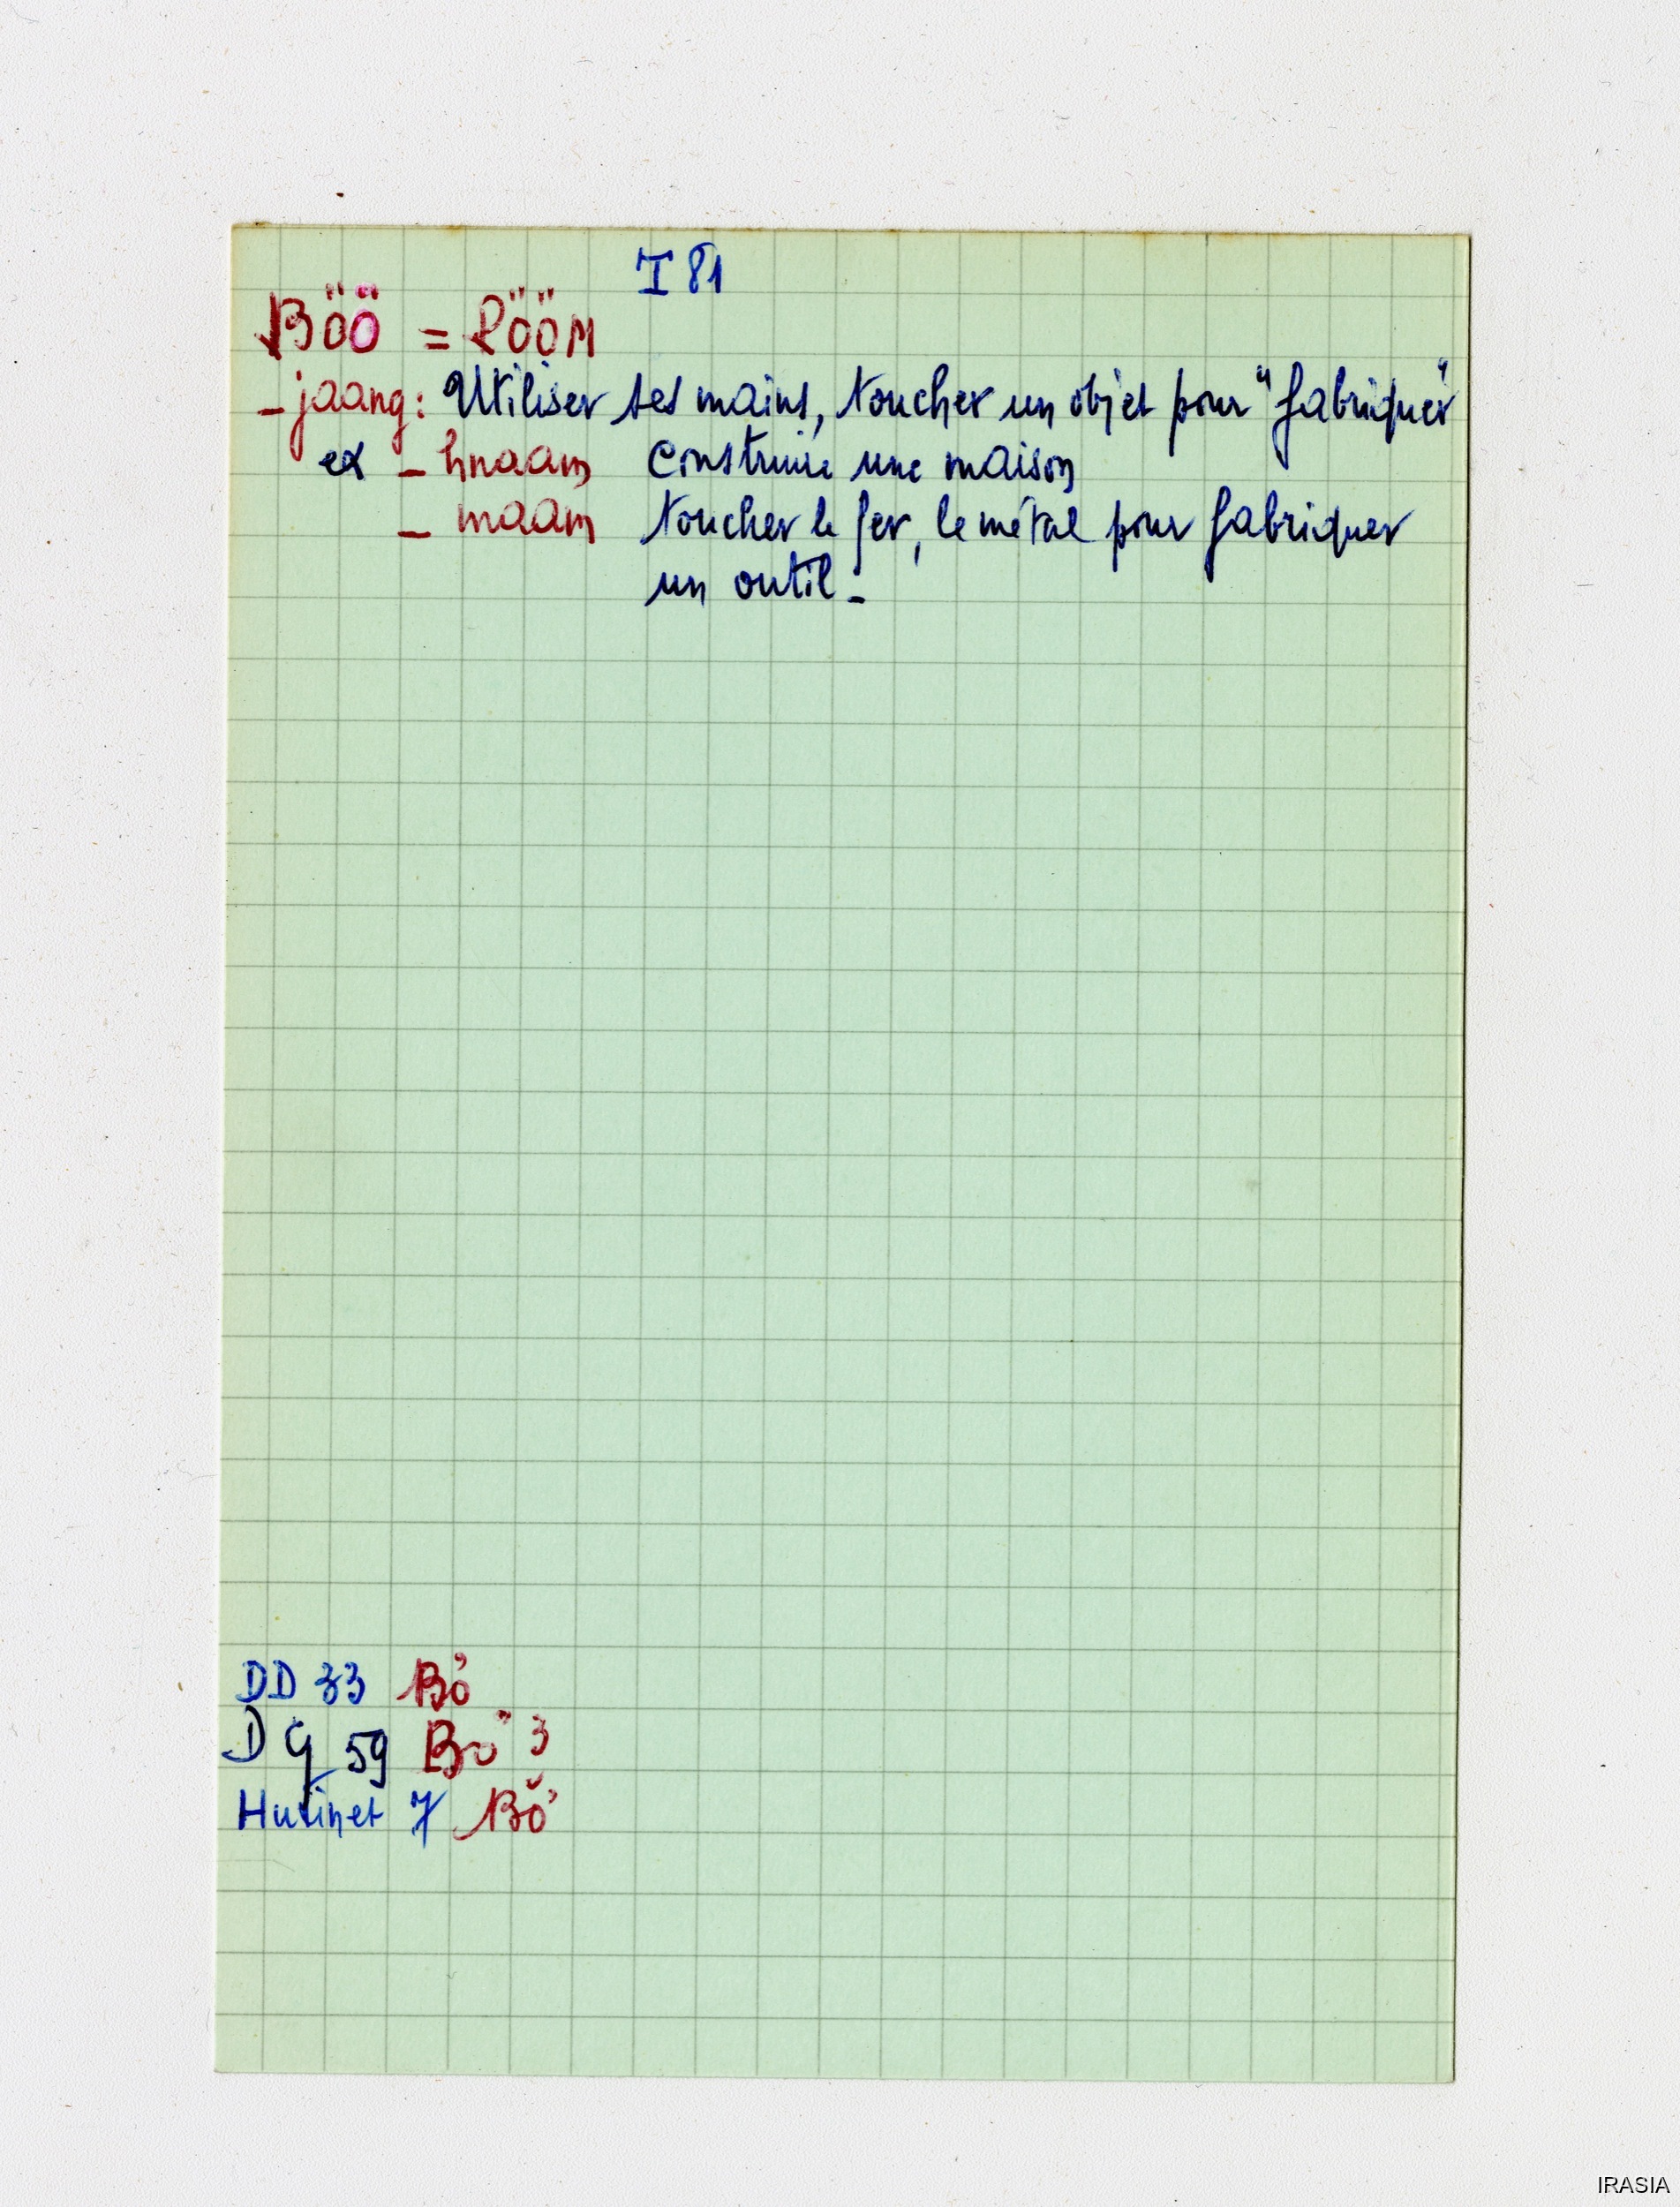 I 81
Böö = Pööm
_ jaang : Utiliser ses mains, toucher un objet pour "fabriquer"
ex _ hnaam construire une maison
_ maam toucher le fer, le métal pour fabriquer
un outil _
DD 33 Bơ̆
DG 59 Bơ̆ 3
Hutinet 7 Bơ̆
IRASIA